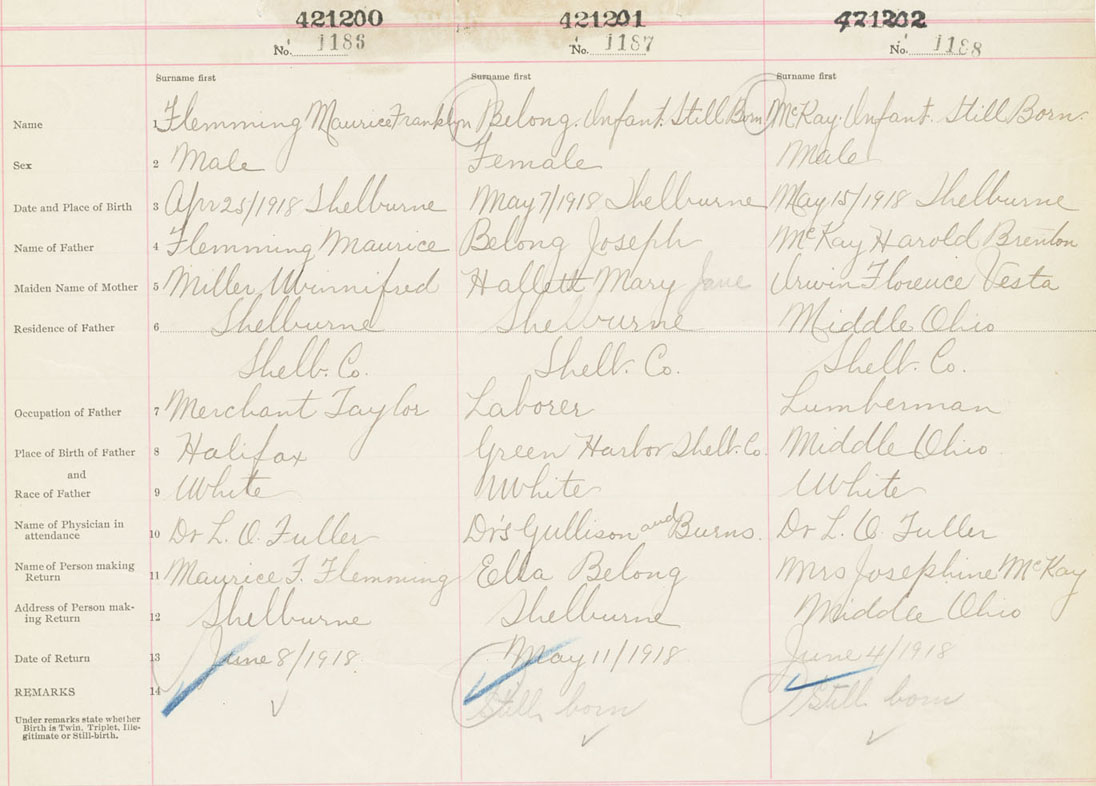 421200 421201 421202
No. 1186 No. 1187 No. 1188
Surname first Surname first Surname first
Name 1 Flemming Maurice Franklyn Belong. Infant. Still Born McKay. Infant. Still Born.
Sex 2 Male Female Male
Date and Place of Birth 3 Apr 25/1918 Shelburne May 7/1918 Shelburne May 15/1918 Shelburne
Name of Father 4 Flemming Maurice Belong Joseph McKay Harold Brenton
Maiden Name of Mother 5 Miller Winnifred Hallett Mary Jane Irwin Florence Vesta
Residence of Father 6 Shelburne Shelburne Middle Ohio
Shelb. Co. Shelb. Co. Shelb. Co.
Occupation of Father 7 Merchant Taylor Laborer Lumberman
Place of Birth of Father 8 Halifax Green Harbor Shelb. Co. Middle Ohio
and
Race of Father 9 White White White
Name of Physician in
attendance 10 Dr L. O. Fuller Dr's Gullison and Burns. Dr L. O. Fuller
Name of Person making
Return 11 Maurice F. Flemming Ella Belong Mrs Josephine McKay
Address of Person mak-
ing Return 12 Shelburne Shelburne Middle Ohio
Date of Return 13 June 8/1918. May 11/1918 June 4/1918
REMARKS 14 Still born Still born
Under remarks state whether
Birth is Twin, Triplet, Ille-
gitimate or Still-birth.